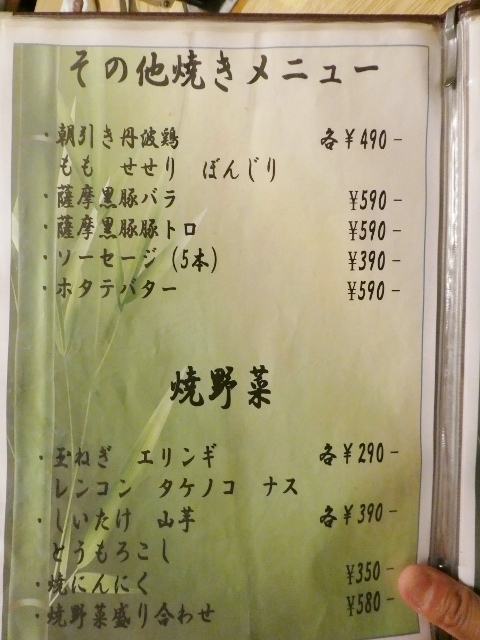 その他焼きメニュー
・朝引き丹波鶏 各￥490-
もも せせり ぼんじり
・薩摩黒豚バラ ￥590-
・薩摩黒豚豚トロ ￥590-
・ソーセージ(5本) ￥390-
・ホタテバター ￥590-
焼野菜
・玉ねぎ エリンギ 各￥290-
レンコン タケノコ ナス
・しいたけ 山芋 各￥390-
とうもろこし
・焼にんにく ￥350-
・焼野菜盛り合わせ ￥580-